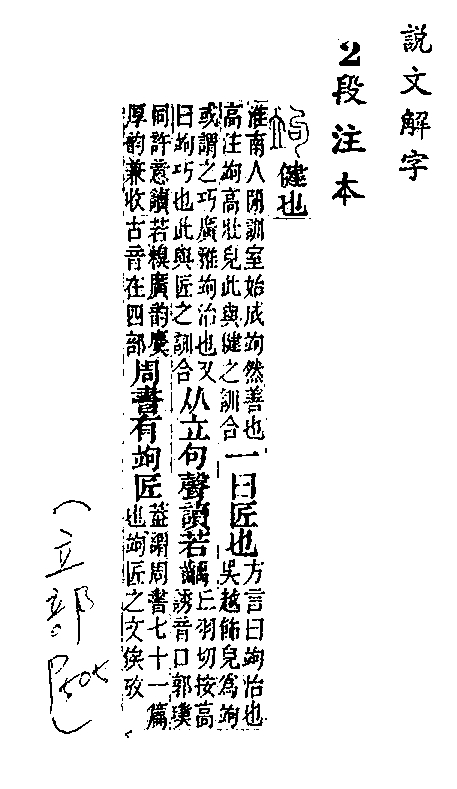 說文解字
2段注本
竘
健也
淮南人閒訓室始成竘然善也
高注竘高壯皃此與健之訓合
一曰匠也
方言曰竘治也
吳越飾皃爲竘
或謂之巧廣雅竘治也又
曰竘巧也此與匠之訓合
从立句聲讀若齲
丘羽切按高
誘音口郭璞
同許意讀若糗廣韵麌
厚韵兼收古音在四部
周書有竘匠
葢謂周書七十一篇
也竘匠之文俟攷
(立部 P505)